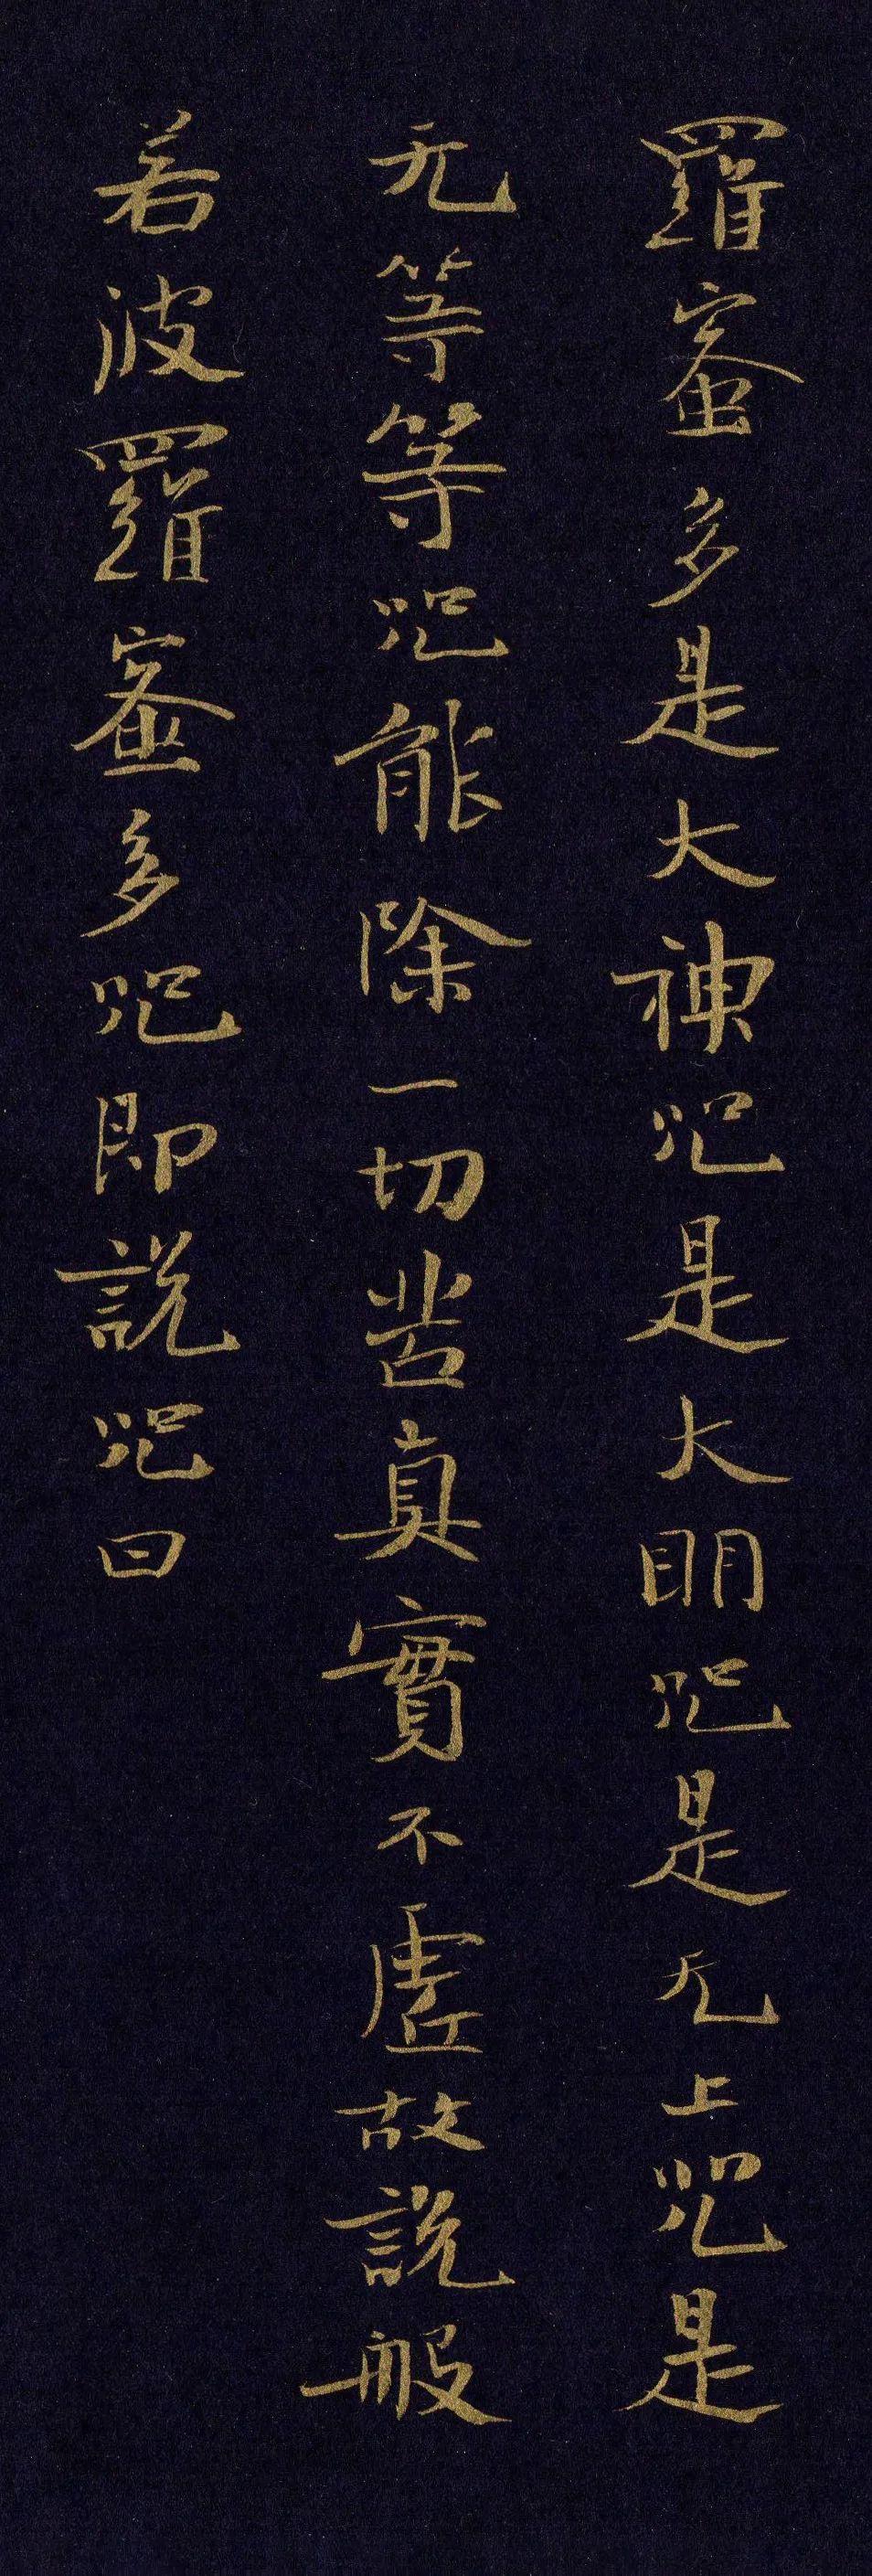 羅蜜多是大神咒是大明咒是无上咒是
无等等咒能除一切苦真實不虛故說般
若波羅蜜多咒即說咒曰